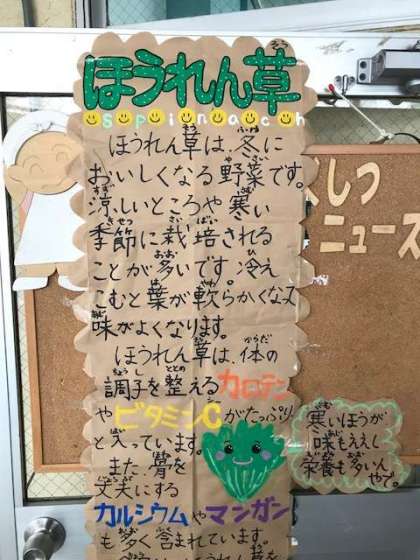 ほうれん草
spoinach
ほうれん草は、冬に
おいしくなる野菜です。
涼しいところや寒い
季節に栽培される
ことが多いです。冷え
こむと葉が軟らかくなり
味がよくなります。
ほうれん草は、体の
調子を整えるカロテン
やビタミンCがたっぷり
と入っています。
また、骨を
丈夫にする
カルシウムやマンガン
も多く含まれています。
寒いほうが
味もええし
栄養も多いん
やで。
しつ
ニュース